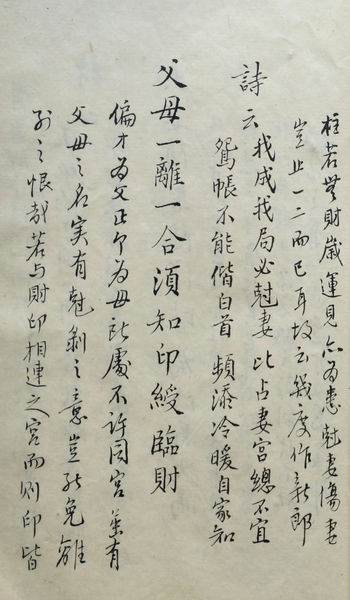 柱若無財歲運見亦為患尅妻傷妻
豈止一二而已耳故云幾度作新郎
詩云
找成找局必尅妻比占妻宮總不宜
鴛帳不能偕白首頻添冷暖自家知
父母一離一合須知印綬臨財
偏才為父正印為母此處不許同宮並有
父母之名实有尅剝之意豈能免離
別之恨哉若与財印相連之宮而则印皆